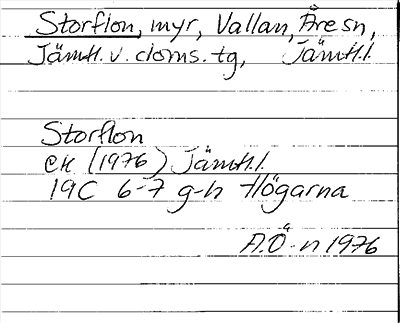 Storflon, myr, Vallan, Åresn,
Jämtl. v. doms. tg, Jämtl.l.
Storflon
ek (1976) Jämtl.l.
19C 6-7 g-h Högarna
A.Ö-n 1976